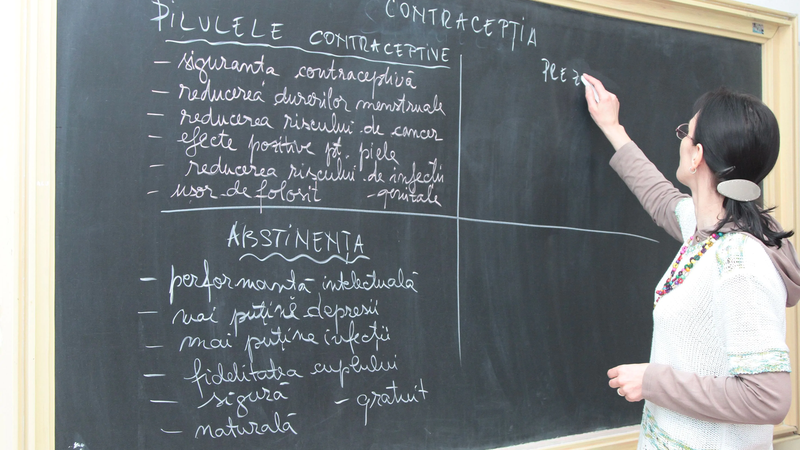 CONTRACEPȚIA
PILULELE CONTRACEPTIVE
- siguranta contraceptivă
- reducerea durerilor menstruale
- reducerea riscului de cancer
- efecte pozitive pt. piele
- reducerea riscului de infecții
- genitale
- usor de folosit
ABSTINENȚA
- performantă intelectuală
- mai puține depresii
- mai puține infecții
- fidelitatea cuplului
- sigură - gratuit
- naturală
PREZ